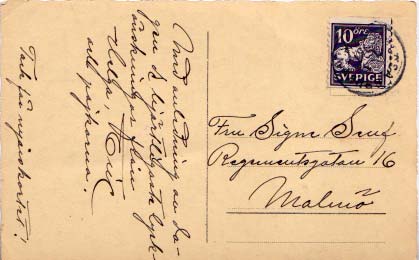 Med anledning av da-
gen de hjärtligaste lyck-
önskningar från
Helga, Eric
och pojkarna.
Tack för nyårskortet!
10 ÖRE
SVERIGE
Fru Signe
Regementsgatan 16
Malmö